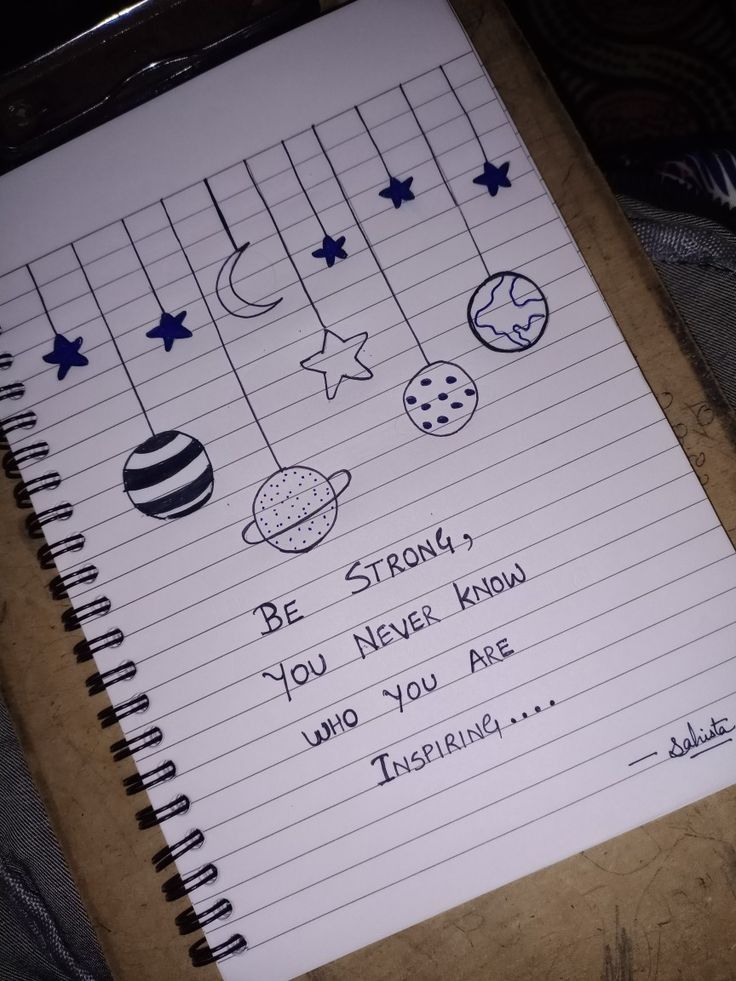 BE STRONG,
YOU NEVER KNOW
WHO YOU ARE
INSPIRING....
— Sahista